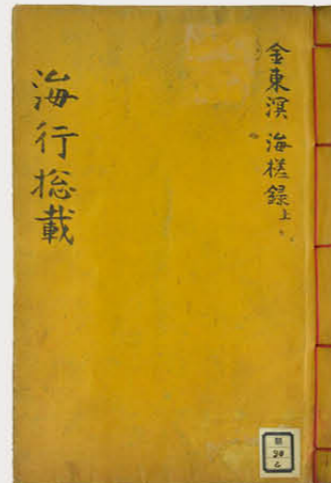 金東溟 海槎録 上
海行揔載